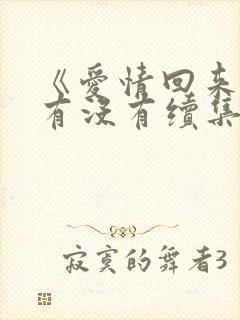 《爱情回来
有没有续集
寂寞的舞者3